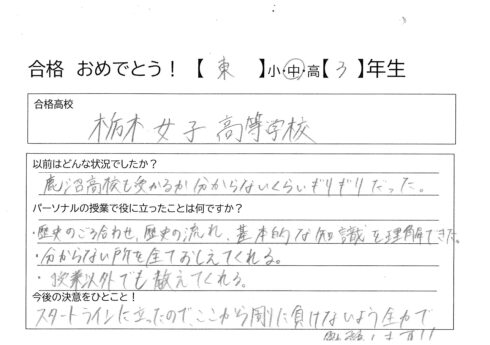 合格 おめでとう！【 東 】小・中・高【 3 】年生
合格高校
栃木女子高等学校
以前はどんな状況でしたか？
鹿沼高校も受かるか分からないくらいぎりぎりだった。
パーソナルの授業で役に立ったことは何ですか？
・歴史のごろ合わせ、歴史の流れ、基本的な知識を理解できた。
・分からない所を全ておしえてくれる。
・授業以外でも教えてくれる。
今後の決意をひとこと！
スタートラインに立ったので、ここから周りに負けないよう全力で
します!!